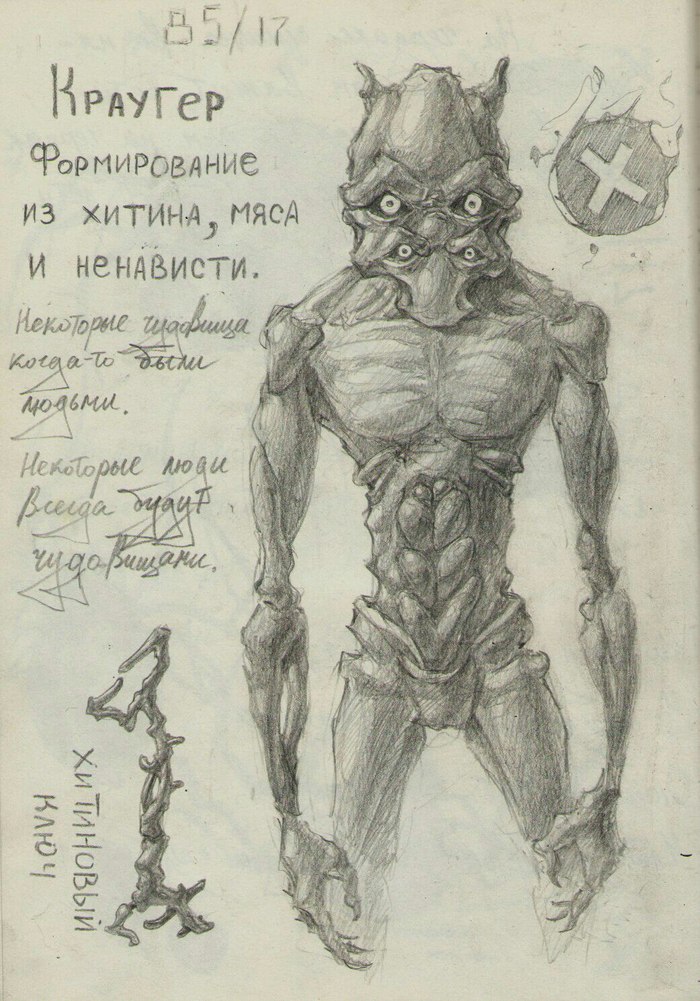 В5/17
Краугер
Формирование
из хитина, мяса
и ненависти.
Некоторые чудовища
когда-то были
людьми.
Некоторые люди
Всегда будут
чудовищами.
хитиновый
ключ